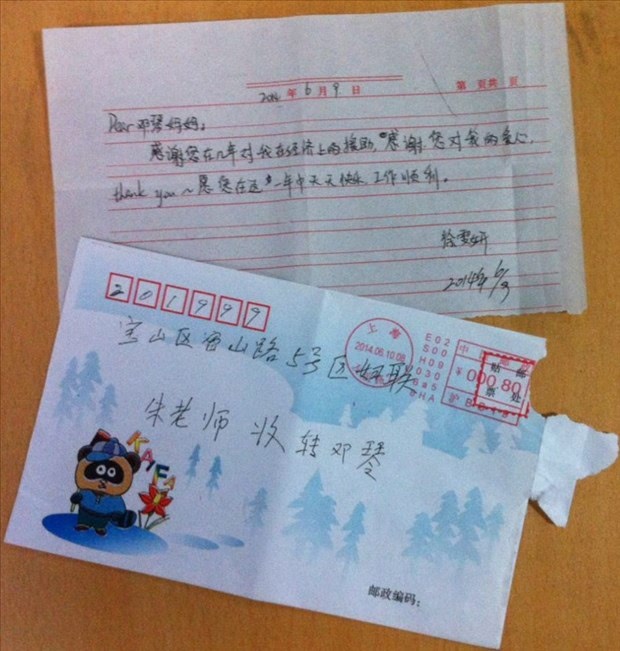 2014 年 6 月 9 日
第 页共 页
Dear 邓琴妈妈:
感谢您在几年对我在经济上的援助,感谢您对我的爱心,
thank you~愿您在这一年中天天快乐 工作顺利。
徐雯妍
2014年6/9
201999
宝山区密山路5号区妇联
朱老师 收 转邓琴
KAFA
上海
2014.06.10.08
E02
S00
H09
中
邮
¥000.80
贴邮
票处
沪
邮政编码: